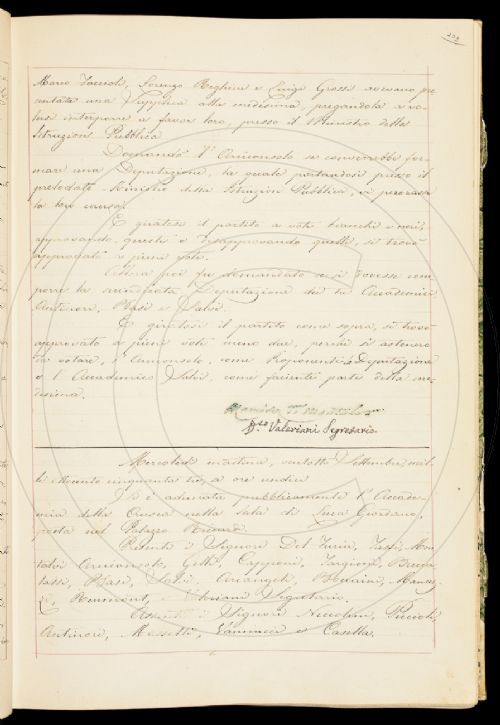 Marco Taccioli, Lorenzo Reghini e Luigi Grossi avevano pre-
sentata una Supplica alla medesima, pregandola a vo-
lersi interporre a favor loro, presso il Ministro della
Istruzione Pubblica.
Domandò l'Arciconsolo se converrebbe for-
mare una Deputazione, la quale portandosi presso il
prelodato Ministro della Istruzion Pubblica, vi perorasse
la loro causa.
E giratosi il partito a voti bianchi e neri,
approvando questi e disapprovando quelli, si trovò
approvato a pieni voti.
Allora poi fu domandato se si dovesse com-
porre la Deputazione dei tre Accademici
Antinori, Masi e Salvi.
E giratosi il partito come sopra, si trovò
approvato a pieni voti meno due, perchè si astennero
da votare, l'Arciconsolo, come Proponente la Deputazione
e l'Accademico Salvi, come facienti parte della me-
desima.
Valeriani Segretario
Mercoledì mattina, ventotto Settembre mil-
le ottocento cinquanta tre, a ore undici
Si è adunata pubblicamente l'Accade-
mia della Crusca nella sala di Luca Giordano,
posta nel Palazzo Riccardi.
Presenti i Signori Del Furia, Tassi, Mon-
talvi Arciconsolo, Gelli, Capponi, Targioni,
Masi, Salvi, Arcangeli,
e Valeriani Segretario.
Assenti i Signori Niccolini, Puccioli,
Antinori, Vannucci e Casella.